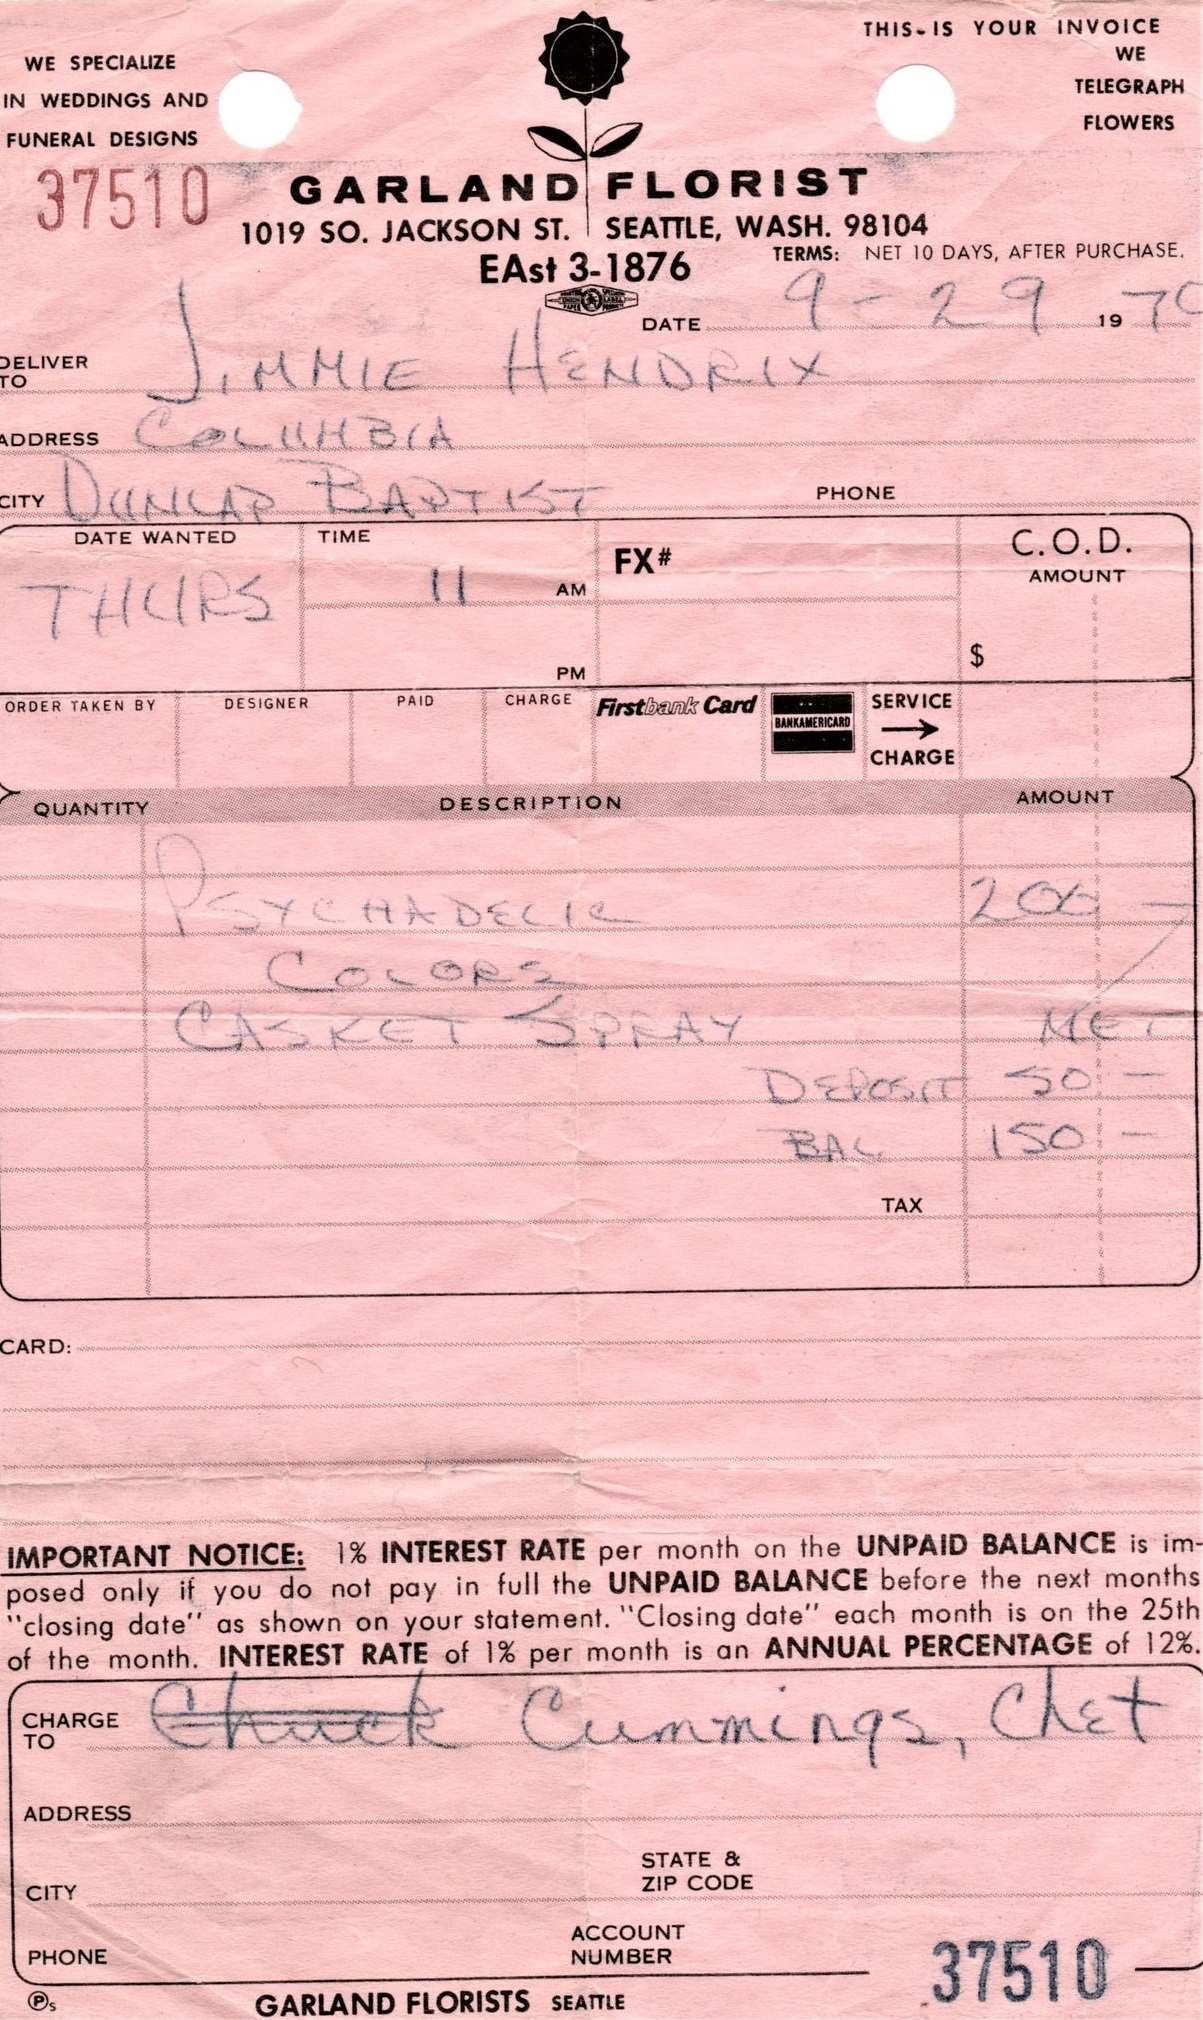 THIS-IS YOUR INVOICE
WE SPECIALIZE
IN WEDDINGS AND
FUNERAL DESIGNS
WE
TELEGRAPH
FLOWERS
37510
GARLAND FLORIST
1019 SO. JACKSON ST. SEATTLE, WASH. 98104
EAst 3-1876
TERMS: NET 10 DAYS, AFTER PURCHASE.
DATE 9-29 1970
DELIVER TO JIMMIE HENDRIX
ADDRESS COLUMBIA
CITY DUNLAP BAPTIST PHONE
DATE WANTED TIME FX# C.O.D.
AMOUNT
THURS 11 AM
PM $
ORDER TAKEN BY DESIGNER PAID CHARGE Firstbank Card BANKAMERICARD SERVICE → CHARGE
QUANTITY DESCRIPTION AMOUNT
PSYCHADELIC 200 —
COLORS
CASKET SPRAY NET
DEPOSIT 50 —
BAL 150 —
TAX
CARD:
IMPORTANT NOTICE: 1% INTEREST RATE per month on the UNPAID BALANCE is im-
posed only if you do not pay in full the UNPAID BALANCE before the next months
"closing date" as shown on your statement. "Closing date" each month is on the 25th
of the month. INTEREST RATE of 1% per month is an ANNUAL PERCENTAGE of 12%.
CHARGE TO Chuck Cummings, Chet
ADDRESS
CITY STATE & ZIP CODE
PHONE ACCOUNT NUMBER
37510
Ps GARLAND FLORISTS SEATTLE